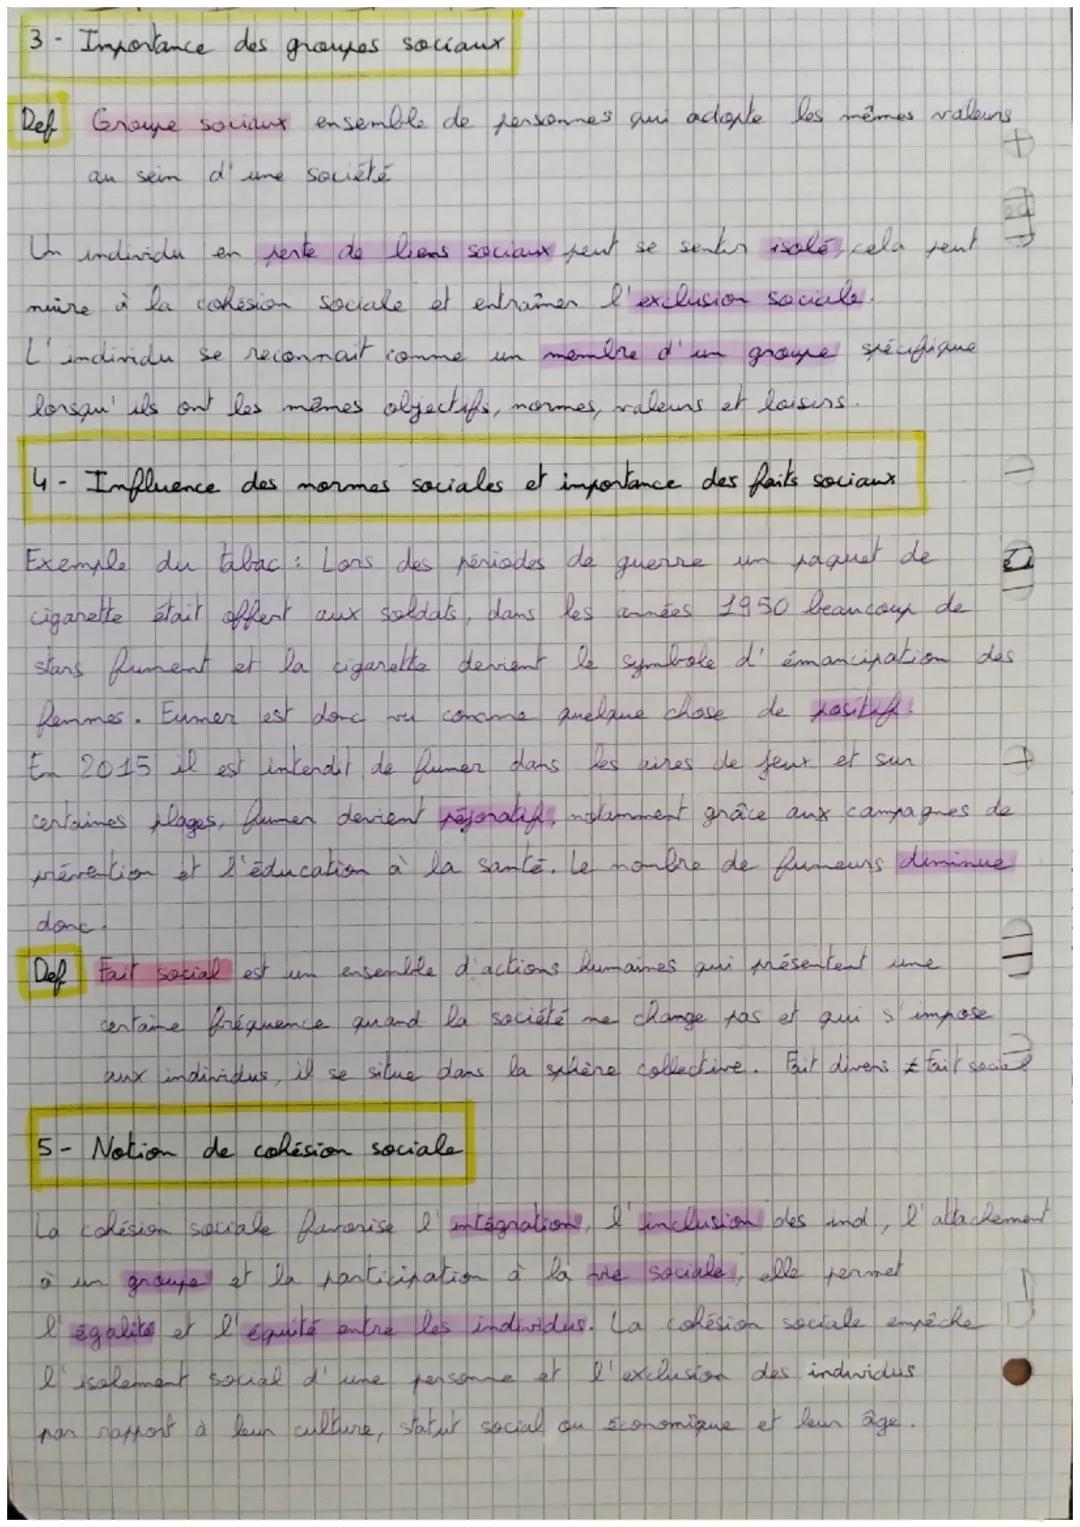 3 - Importance des groupes sociaux
Def Groupe sociaux ensemble de personnes qui adopte les mêmes valeurs
au sein d'une société
Un individu en perte de liens sociaux peut se sentir isolé, cela peut
nuire à la cohésion sociale et entraîner l'exclusion sociale.
L'individu se reconnait comme un membre d'un groupe spécifique
lorsqu'ils ont les mêmes objectifs, normes, valeurs et loisirs.
4 - Influence des normes sociales et importance des faits sociaux
Exemple du tabac : Lors des périodes de guerre un paquet de
cigarette était offert aux soldats, dans les années 1950 beaucoup de
stars fument et la cigarette devient le symbole d'émancipation des
femmes. Fumer est donc vu comme quelque chose de positif.
En 2015 il est interdit de fumer dans les aires de jeux et sur
certaines plages, fumer devient péjoratif, notamment grâce aux campagnes de
prévention et l'éducation à la santé. Le nombre de fumeurs diminue
donc.
Def Fait social est un ensemble d'actions humaines qui présentent une
certaine fréquence quand la société ne change pas et qui s'impose
aux individus, il se situe dans la sphère collective. Fait divers ≠ Fait social
5 - Notion de cohésion sociale
La cohésion sociale favorise l'intégration, l'inclusion des ind, l'attachement
à un groupe et la participation à la vie sociale, elle permet
l'égalité et l'équité entre les individus. La cohésion sociale empêche
l'isolement social d'une personne et l'exclusion des individus
par rapport à leur culture, statut social ou économique et leur âge.